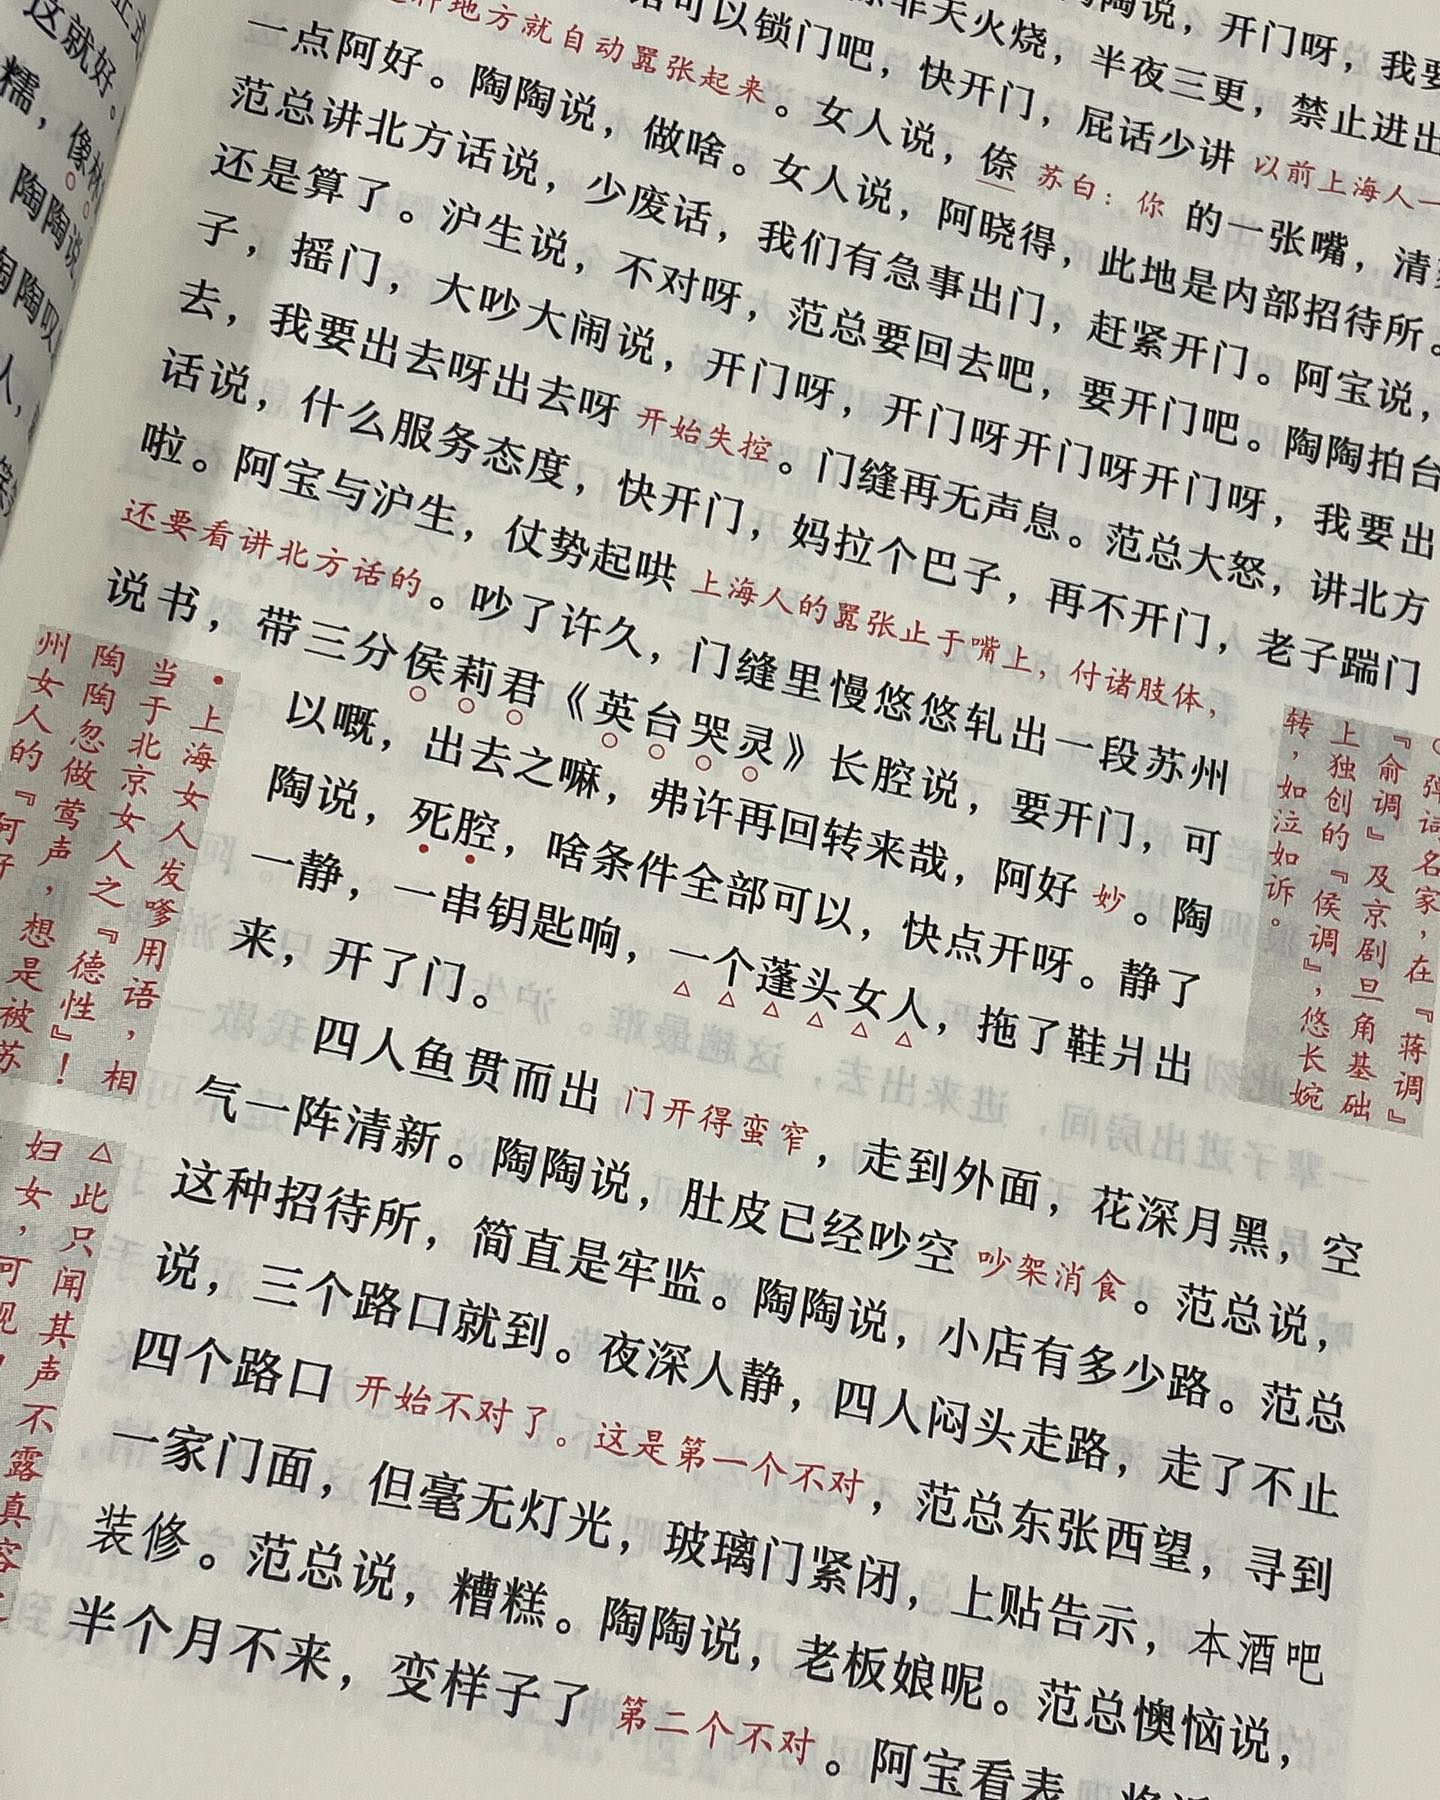 陶说，开门呀，我要
非天火烧，半夜三更，禁止进出
可以锁门吧，快开门，屁话少讲 以前上海人一
地方就自动嚣张起来。女人说，倷 苏白：你 的一张嘴，清
一点阿好。陶陶说，做啥。女人说，阿晓得，此地是内部招待所。
范总讲北方话说，少废话，我们有急事出门，赶紧开门。阿宝说，
还是算了。沪生说，不对呀，范总要回去吧，要开门吧。陶陶拍台
子，摇门，大吵大闹说，开门呀，开门呀开门呀开门呀，我要出
去，我要出去呀出去呀 开始失控。门缝再无声息。范总大怒，讲北方
话说，什么服务态度，快开门，妈拉个巴子，再不开门，老子踹门
啦。阿宝与沪生，仗势起哄 上海人的嚣张止于嘴上，付诸肢体，
还要看讲北方话的。吵了许久，门缝里慢悠悠轧出一段苏州
说书，带三分侯莉君《英台哭灵》长腔说，要开门，可
以嘅，出去之嘛，弗许再回转来哉，阿好 妙。陶
陶说，死腔，啥条件全部可以，快点开呀。静了
一静，一串钥匙响，一个蓬头女人，拖了鞋爿出
来，开了门。
四人鱼贯而出 门开得蛮窄，走到外面，花深月黑，空
气一阵清新。陶陶说，肚皮已经吵空 吵架消食。范总说，
这种招待所，简直是牢监。陶陶说，小店有多少路。范总
说，三个路口就到。夜深人静，四人闷头走路，走了不止
四个路口 开始不对了。这是第一个不对，范总东张西望，寻到
一家门面，但毫无灯光，玻璃门紧闭，上贴告示，本酒吧
装修。范总说，糟糕。陶陶说，老板娘呢。范总懊恼说，
半个月不来，变样子了 第二个不对。阿宝看表
弹词名家，在『蒋调』
『俞调』及京剧旦角基础
上独创的『侯调』，悠长婉
转，如泣如诉。
•上海女人发嗲用语，相
当于北京女人之『德性』！
陶陶忽做莺声，想是被苏
州女人的『阿好
△此只闻其声不露真容
妇女，可
这就好。
糯，像林
陶陶说
陶陶叹
人，